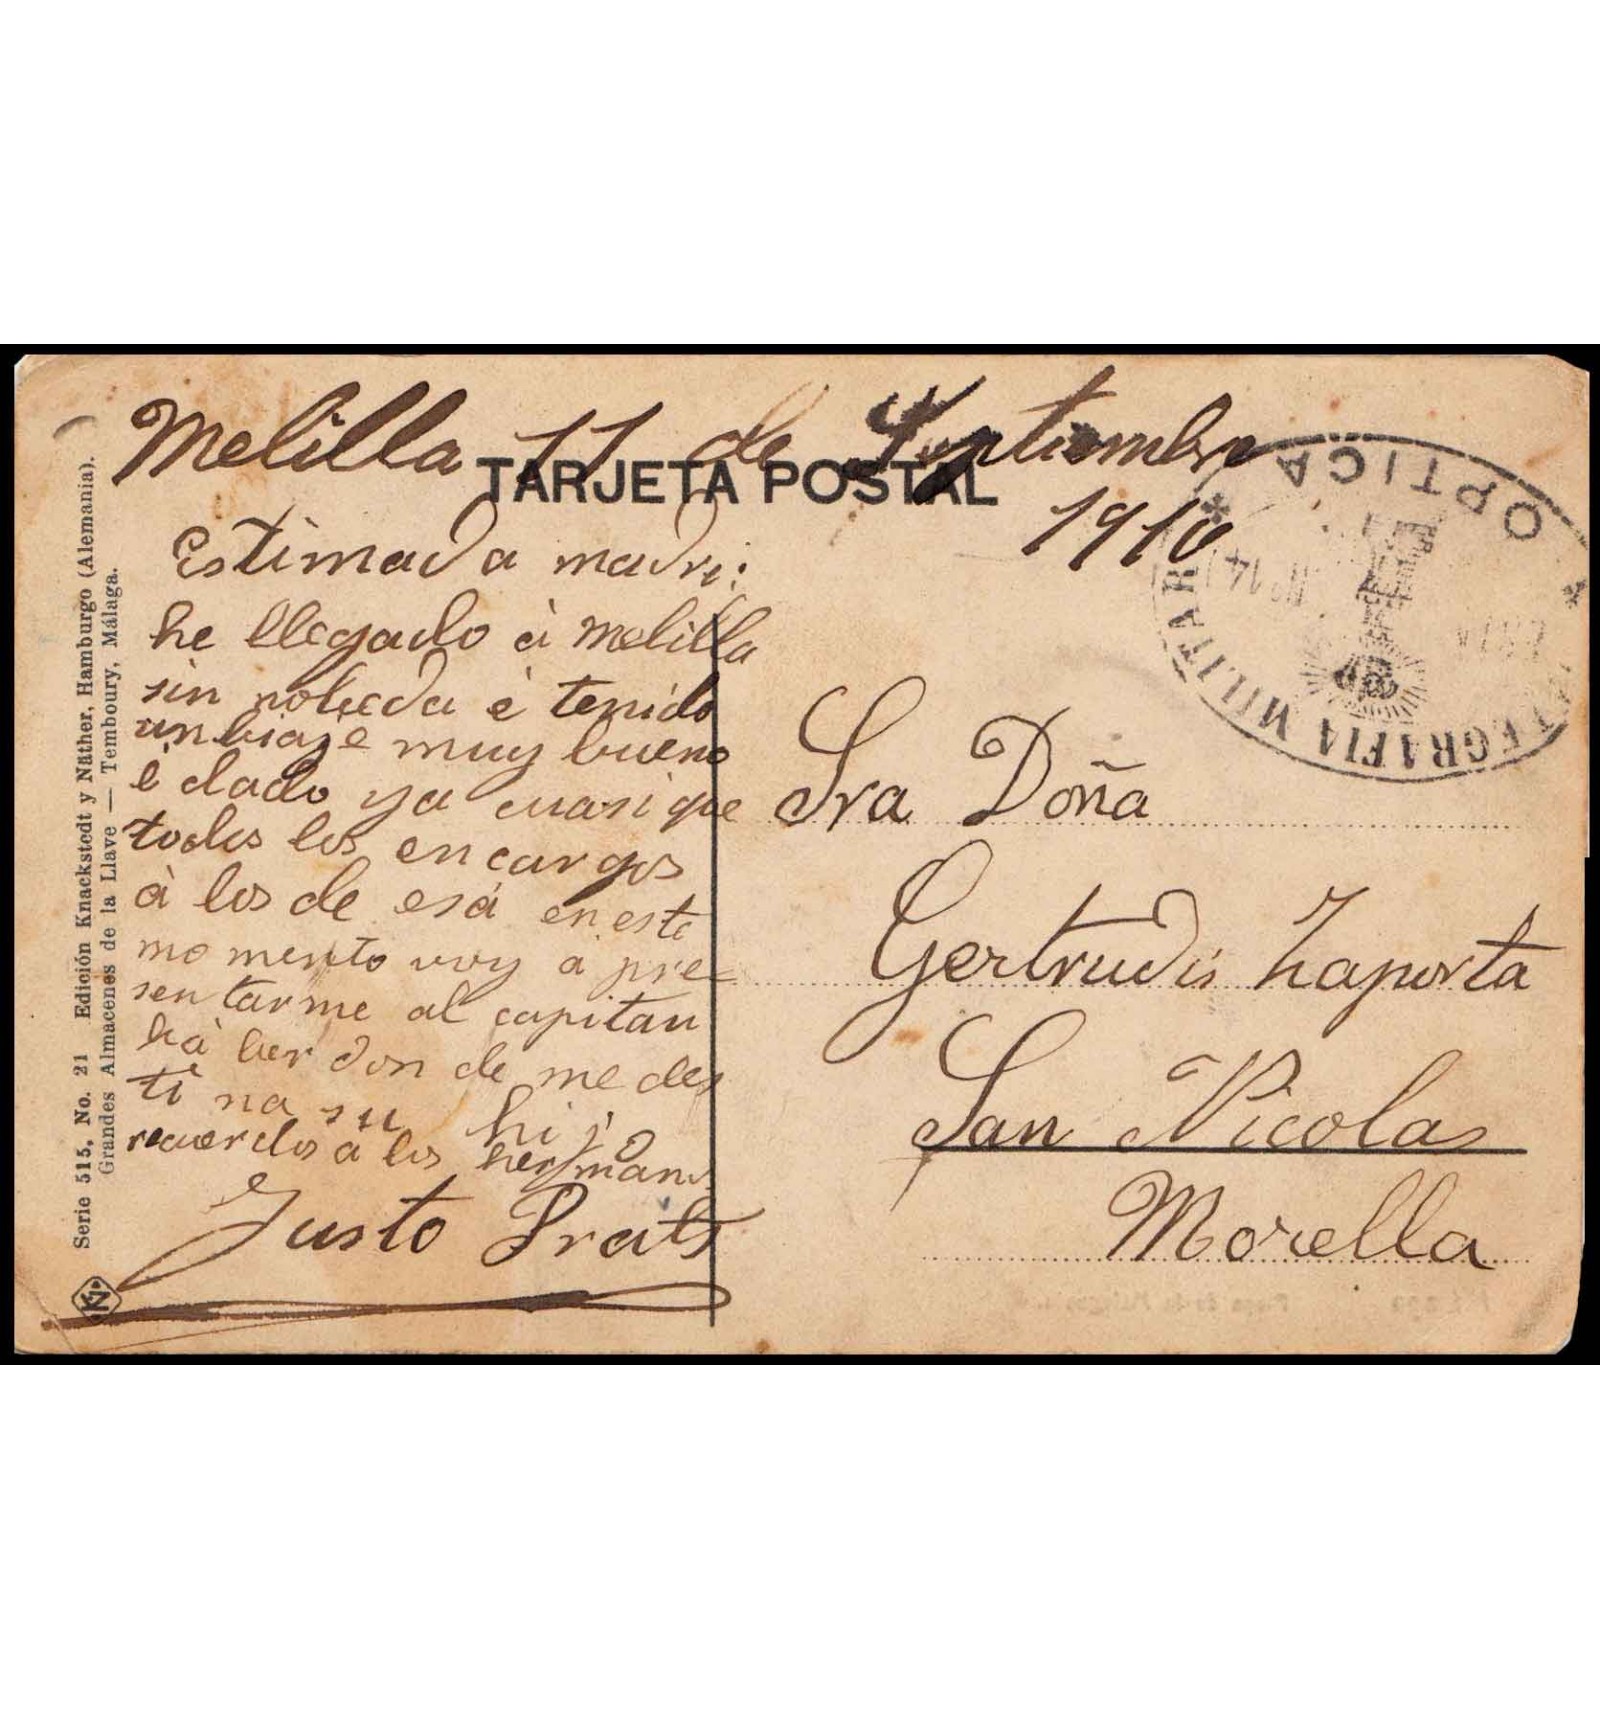 Melilla 11 de Septiembre
TARJETA POSTAL
1910
Estimada madri:
he llegado á Melilla
sin nobeda é tenido
un biaje muy bueno
é dado ya cuasi que
todos los encargos
á los de esá en este
momento voy a pre
sentarme al capitan
há ber don de me des
ti na su hijo
recuerdos a los hermanos
Justo Prats
Sra Doña
Gertrudis Zaporta
San Nicolas
Morella
TELEGRAFIA MILITAR * OPTICA *
Nº 14
Serie 515, No. 21 Edición Knackstedt y Näther, Hamburgo (Alemania).
Grandes Almacenes de la Llave — Temboury, Málaga.
KN